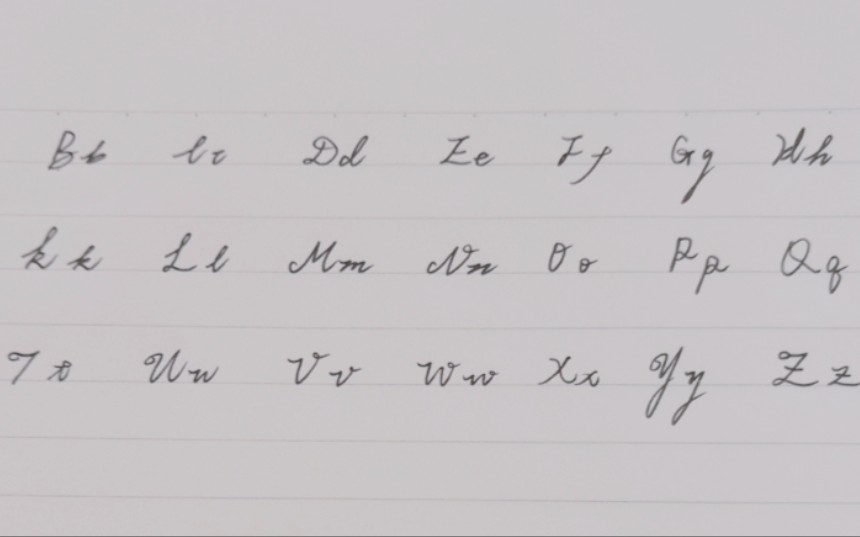 Bb Cc Dd Ee Ff Gg Hh
Kk Ll Mm Nn Oo Pp Qq
Tt Uu Vv Ww Xx Yy Zz